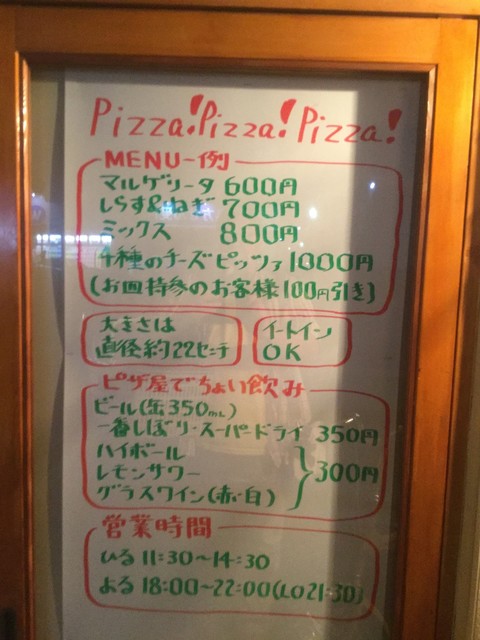 Pizza! Pizza! Pizza!
MENU-例
マルゲリータ 600円
しらす&ねぎ 700円
ミックス 800円
4種のチーズピッツァ 1000円
(お皿持参のお客様100円引き)
大きさは
直径約22センチ
イートイン
OK
ピザ屋でちょい飲み
ビール(缶350mL)
一番しぼり・スーパードライ 350円
ハイボール
レモンサワー
300円
グラスワイン(赤・白)
営業時間
ひる 11:30~14:30
よる 18:00~22:00(LO21:30)